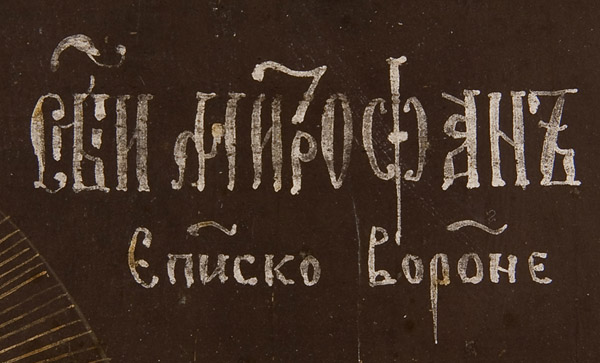 СТ҃ЫИ МИТРОФАНЪ
Єпи҃ско воро҃нє